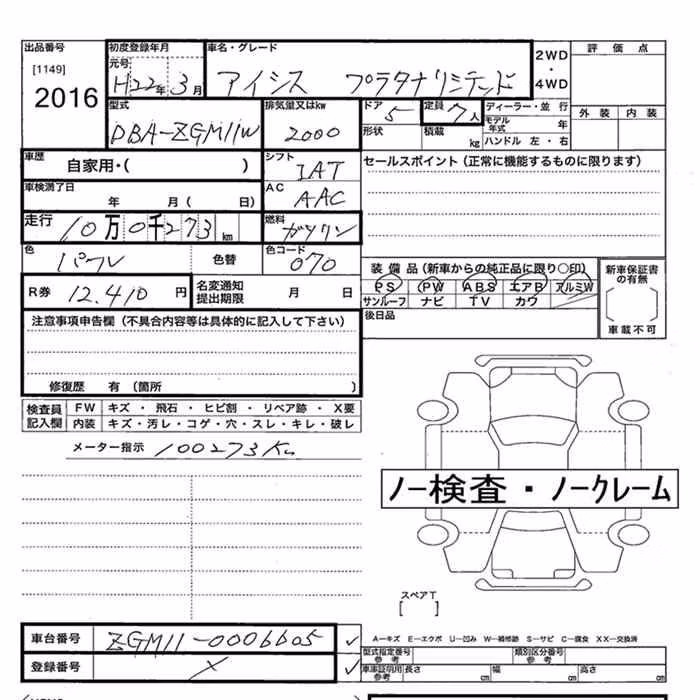 出品番号 初度登録年月 車名・グレード 2WD 評価点
[1149] 元号 ・
2016 H22年3月 アイシス プラタナリミテッド 4WD
型式 排気量又はkw ドア 定員 ディーラー・並行 外装 内装
DBA-ZGM11W 2000 5 7人 モデル年式 年
形状 積載 kg ハンドル 左・右
車歴 自家用・( ) シフト IAT セールスポイント(正常に機能するものに限ります)
車検満了日 年 月( 日) AC AAC
走行 10万0千273km 燃料 ガソリン
色 パール 色替 色コード 070
装備品(新車からの純正品に限り○印) 新車保証書の有無
R券 12.410円 名変通知提出期限 月 日
PS PW ABS エアB アルミW
サンルーフ ナビ TV カワ
後日品 車載不可
注意事項申告欄(不具合内容等は具体的に記入して下さい)
修復歴 有(箇所 )
検査員記入欄 FW キズ・飛石・ヒビ割・リペア跡・X要
内装 キズ・汚レ・コゲ・穴・スレ・キレ・破レ
メーター指示 100273Km
ノー検査・ノークレーム
スペアT
[ ]
車台番号 ZGM11-0006605 ✓
A−キズ E−エクボ U−凹み W−補修跡 S−サビ C−腐食 XX−交換済
型式指定番号 参考 類別区分番号 参考
登録番号 X ✓
車庫証明用 参考 長さ cm 幅 cm 高さ cm